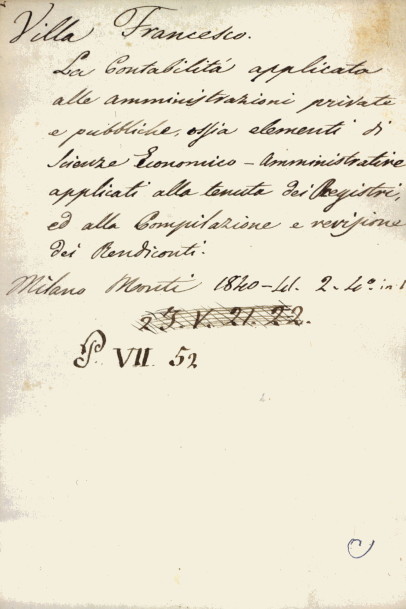 Villa Francesco.
La Contabilitá applicata
alle amministrazioni private
e pubbliche, ossia elementi di
Scienze Economico-Amministrative
applicati alla tenuta dei Registri,
ed alla Compilazione e revisione
dei Rendiconti.
Milano Monti 1840-41. 2. 4º in 1
2 J. V. 21. 22.
P. VII 52